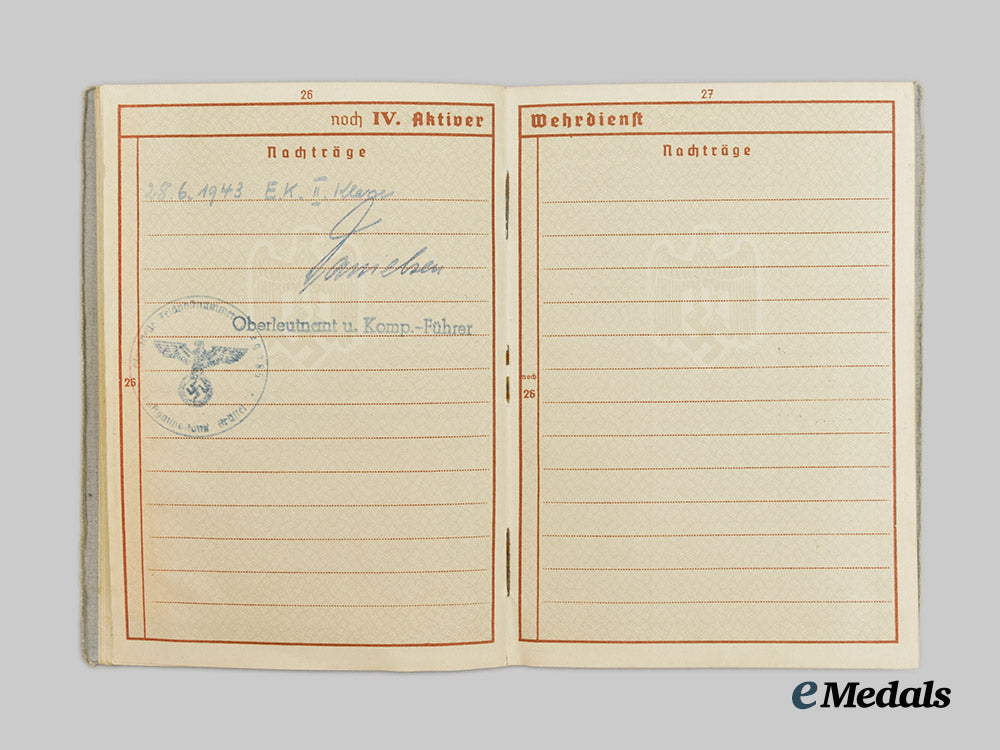 26
noch IV. Aktiver
Nachträge
28.6.1943 E.K. II. Klasse
Oberleutnant u. Komp.-Führer
Feldpostnummer
26
27
Wehrdienst
Nachträge
noch
26
eMedals